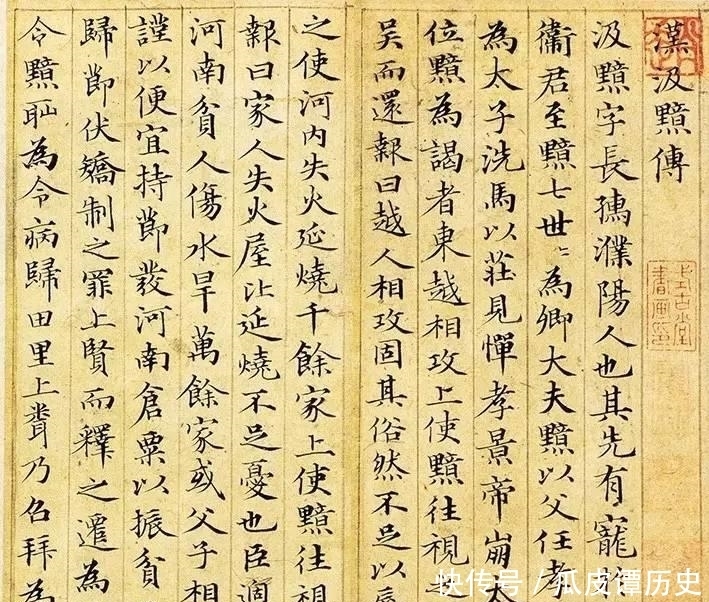 漢汲黯傳
汲黯字長孺濮陽人也其先有寵
衛君至黯七世〻為卿大夫黯以父任孝
為太子洗馬以莊見憚孝景帝崩太
位黯為謁者東越相攻上使黯往視
吴而還報曰越人相攻固其俗然不足以
之使河内失火延燒千餘家上使黯往視
報曰家人失火屋比延燒不足憂也臣過
河南貧人傷水旱萬餘家或父子相
謹以便宜持節發河南倉粟以振貧
歸節伏矯制之罪上賢而釋之遷為
令黯恥為令病歸田里上聞乃召拜為
式古堂書画印
快传号 / 瓜皮谭历史